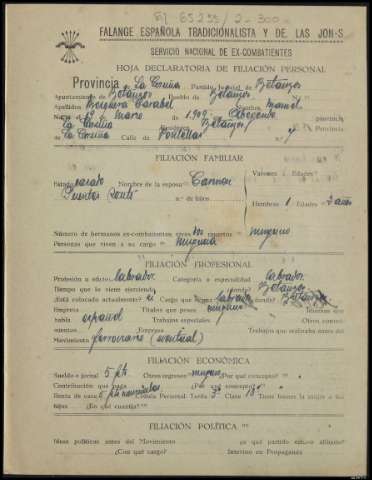 65255/2-300
FALANGE ESPAÑOLA TRADICIONALISTA Y DE LAS JON-S
SERVICIO NACIONAL DE EX-COMBATIENTES
HOJA DECLARATORIA DE FILIACIÓN PERSONAL
Provincia La Coruña Partido Judicial de Betanzos
Ayuntamiento de Betanzos Pueblo de Betanzos
Apellidos Nombre Manuel
de Marzo 1909 provincia
La Coruña Betanzos Provincia
La Coruña Calle de n.º 4
FILIACIÓN FAMILIAR
Varones Edades
Estado casado Nombre de la esposa Carmen
n.º de hijos
Hembras 1 Edades 3 años
Número de hermanos ex-combatientes vivos muertos ninguno
Personas que viven a su cargo ninguna
FILIACIÓN PROFESIONAL
Profesión u oficio labrador Categoría o especialidad labrador
Tiempo que lo viene ejerciendo Betanzos
¿Está colocado actualmente? si Cargo que labrador Betanzos
Empresa Títulos que posee ninguno Idiomas que
habla español Trabajos especiales Otros conoci-
mientos Empresa Trabajos que realizaba antes del
Movimiento ferroviario (eventual)
FILIACIÓN ECONÓMICA
Sueldo o jornal 5 pts Otros ingresos ninguno ¿Por qué concepto?
Contribución que paga ¿Por qué concepto?
Renta de casa 5 pts Cédula Personal Tarifa 3ª Clase 13ª Tiene bienes la mujer o los
hijos ¿En qué cuantía?
FILIACIÓN POLÍTICA
Ideas políticas antes del Movimiento en qué partido estuvo afiliado?
¿Con qué cargo? Intervino en Propaganda